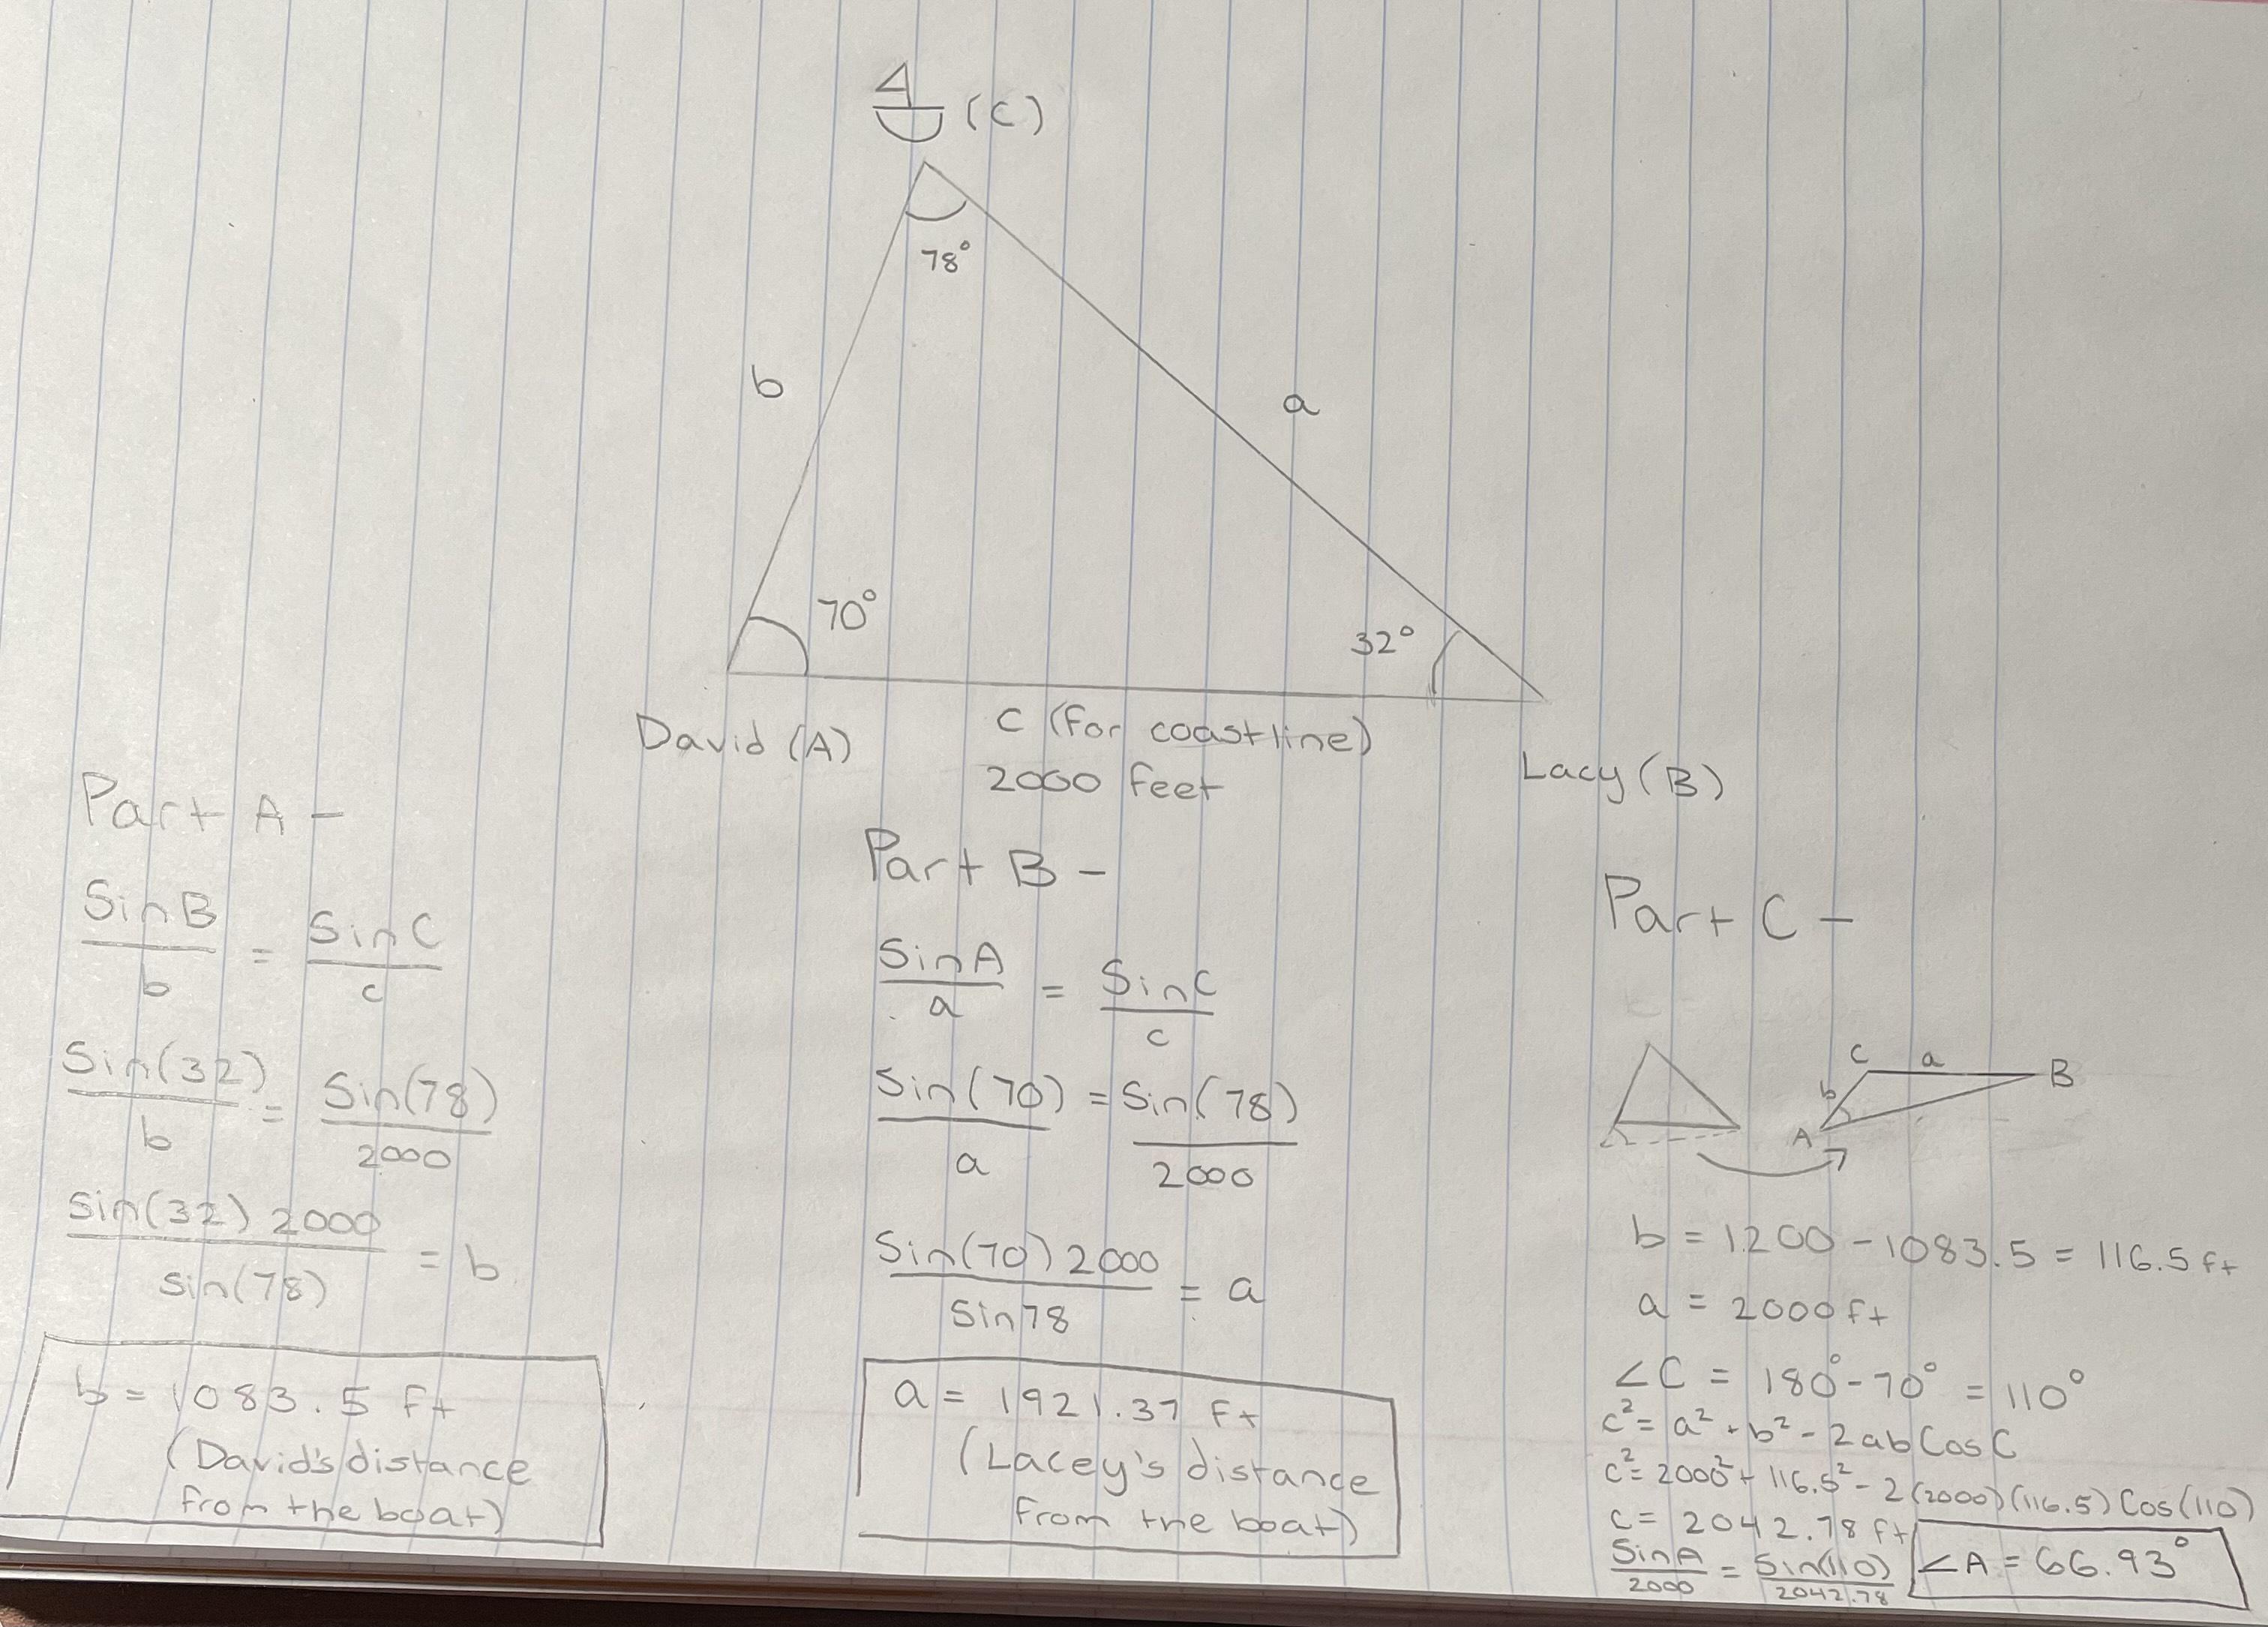 (C)
78°
b
a
70°
32°
David (A)
C (for coastline)
2000 feet
Lacy (B)
Part A -
SinB/b = SinC/c
Sin(32)/b = Sin(78)/2000
Sin(32) 2000/Sin(78) = b
b = 1083.5 ft
(David's distance
from the boat)
Part B -
SinA/a = SinC/c
Sin(70)/a = Sin(78)/2000
Sin(70) 2000/Sin78 = a
a = 1921.37 ft
(Lacey's distance
from the boat)
Part C -
C a B
b
A
b = 1200 - 1083.5 = 116.5 ft
a = 2000 ft
∠C = 180° - 70° = 110°
c² = a² + b² - 2ab Cos C
c² = 2000² + 116.5² - 2(2000)(116.5) Cos(110)
c = 2042.78 ft
SinA/2000 = Sin(110)/2042.78
∠A = 66.93°